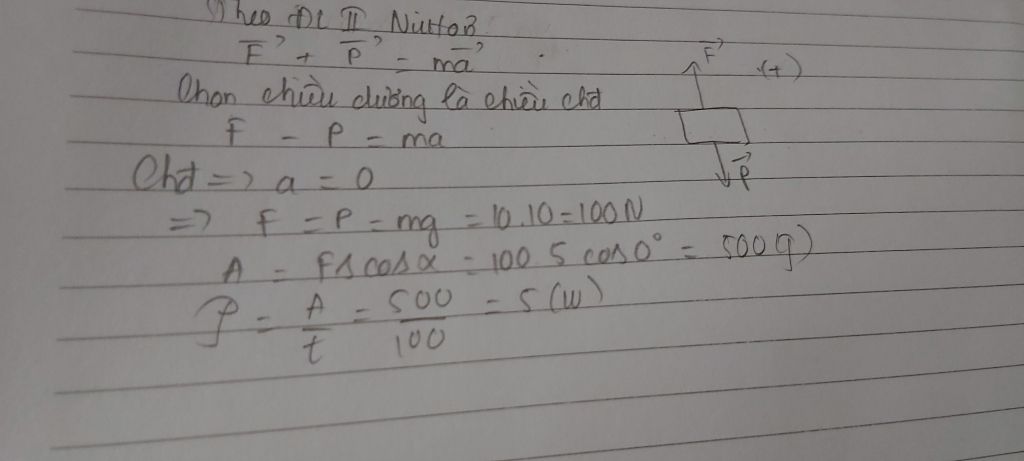 Theo ĐL II Niutơn
F⃗ + P⃗ = ma⃗
Chọn chiều dương là chiều chđ
F - P = ma
Chđ => a = 0
=> F = P = mg = 10.10 = 100N
A = F s cos α = 100 5 cos 0° = 500 (J)
𝒫 = A/t = 500/100 = 5 (W)
F⃗ (+)
P⃗